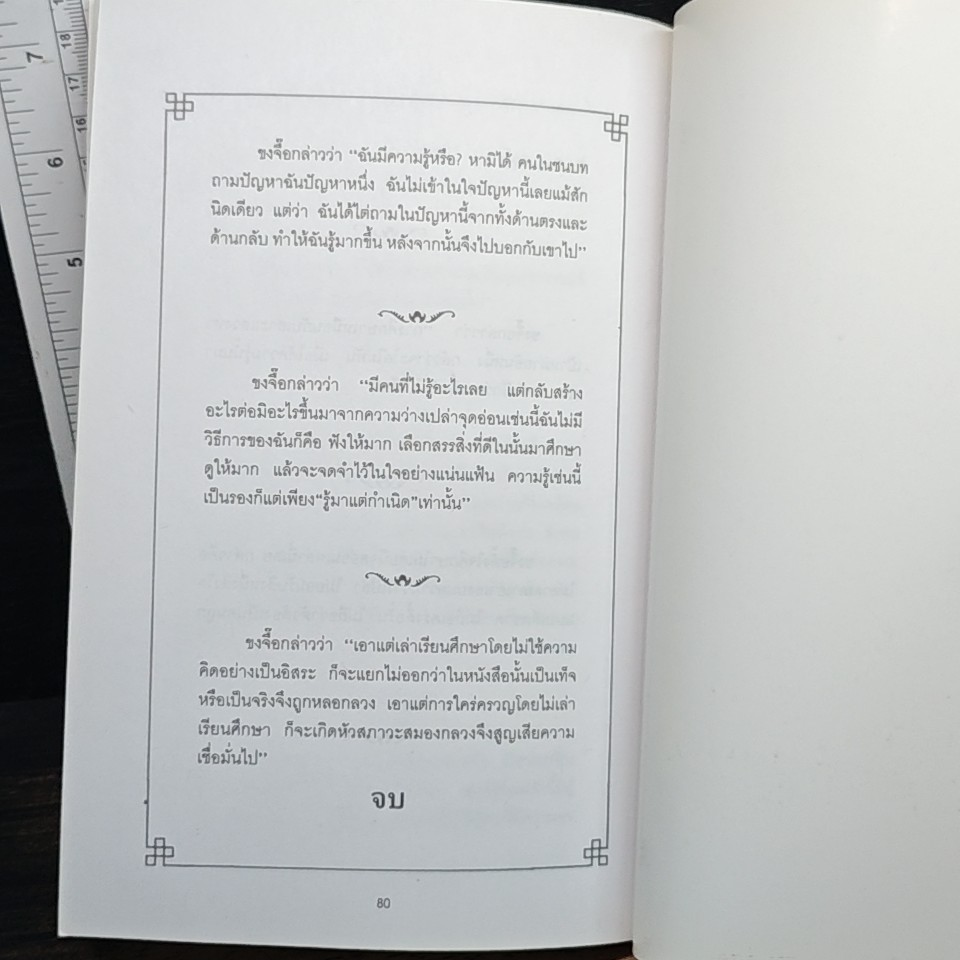 7
18
17
16
6
5
ขงจื๊อกล่าวว่า “ฉันมีความรู้หรือ? หามิได้ คนในชนบท
ถามปัญหาฉันปัญหาหนึ่ง ฉันไม่เข้าในใจปัญหานี้เลยแม้สัก
นิดเดียว แต่ว่า ฉันได้ไต่ถามในปัญหานี้จากทั้งด้านตรงและ
ด้านกลับ ทำให้ฉันรู้มากขึ้น หลังจากนั้นจึงไปบอกกับเขาไป”
ขงจื๊อกล่าวว่า “มีคนที่ไม่รู้อะไรเลย แต่กลับสร้าง
อะไรต่อมิอะไรขึ้นมาจากความว่างเปล่าจุดอ่อนเช่นนี้ฉันไม่มี
วิธีการของฉันก็คือ ฟังให้มาก เลือกสรรสิ่งที่ดีในนั้นมาศึกษา
ดูให้มาก แล้วจะจดจำไว้ในใจอย่างแน่นแฟ้น ความรู้เช่นนี้
เป็นรองก็แต่เพียง“รู้มาแต่กำเนิด”เท่านั้น”
ขงจื๊อกล่าวว่า “เอาแต่เล่าเรียนศึกษาโดยไม่ใช้ความ
คิดอย่างเป็นอิสระ ก็จะแยกไม่ออกว่าในหนังสือนั้นเป็นเท็จ
หรือเป็นจริงจึงถูกหลอกลวง เอาแต่การใคร่ครวญโดยไม่เล่า
เรียนศึกษา ก็จะเกิดหัวสภาวะสมองกลวงจึงสูญเสียความ
เชื่อมั่นไป”
จบ
80